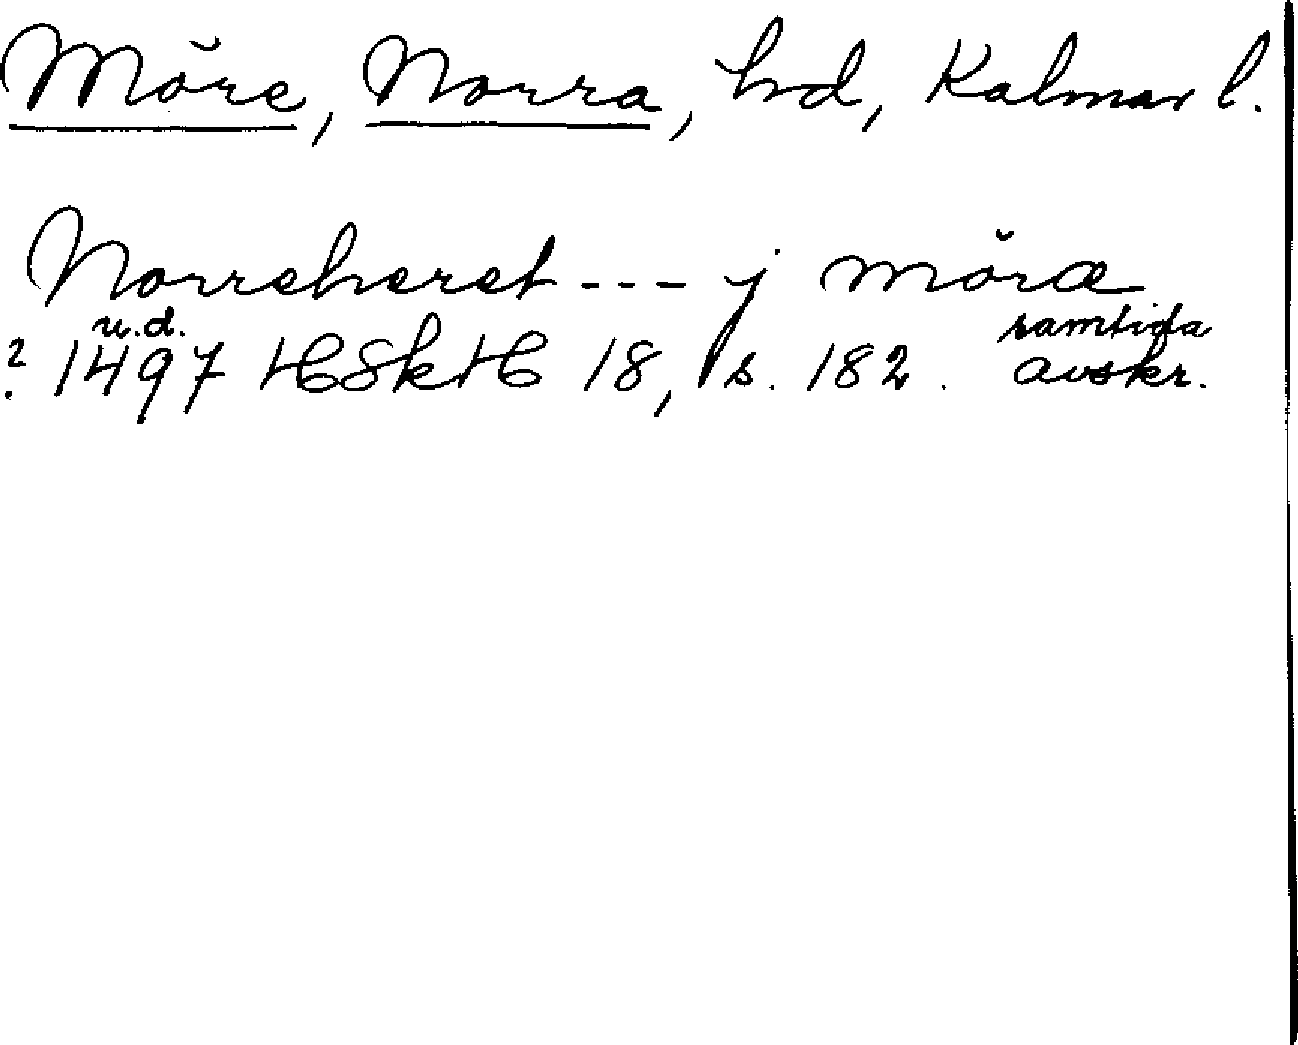 Möre, Norra, hd, Kalmar l.
Norreheret --- j möræ
u.d. samtida
? 1497 HSkH 18, s. 182. avskr.